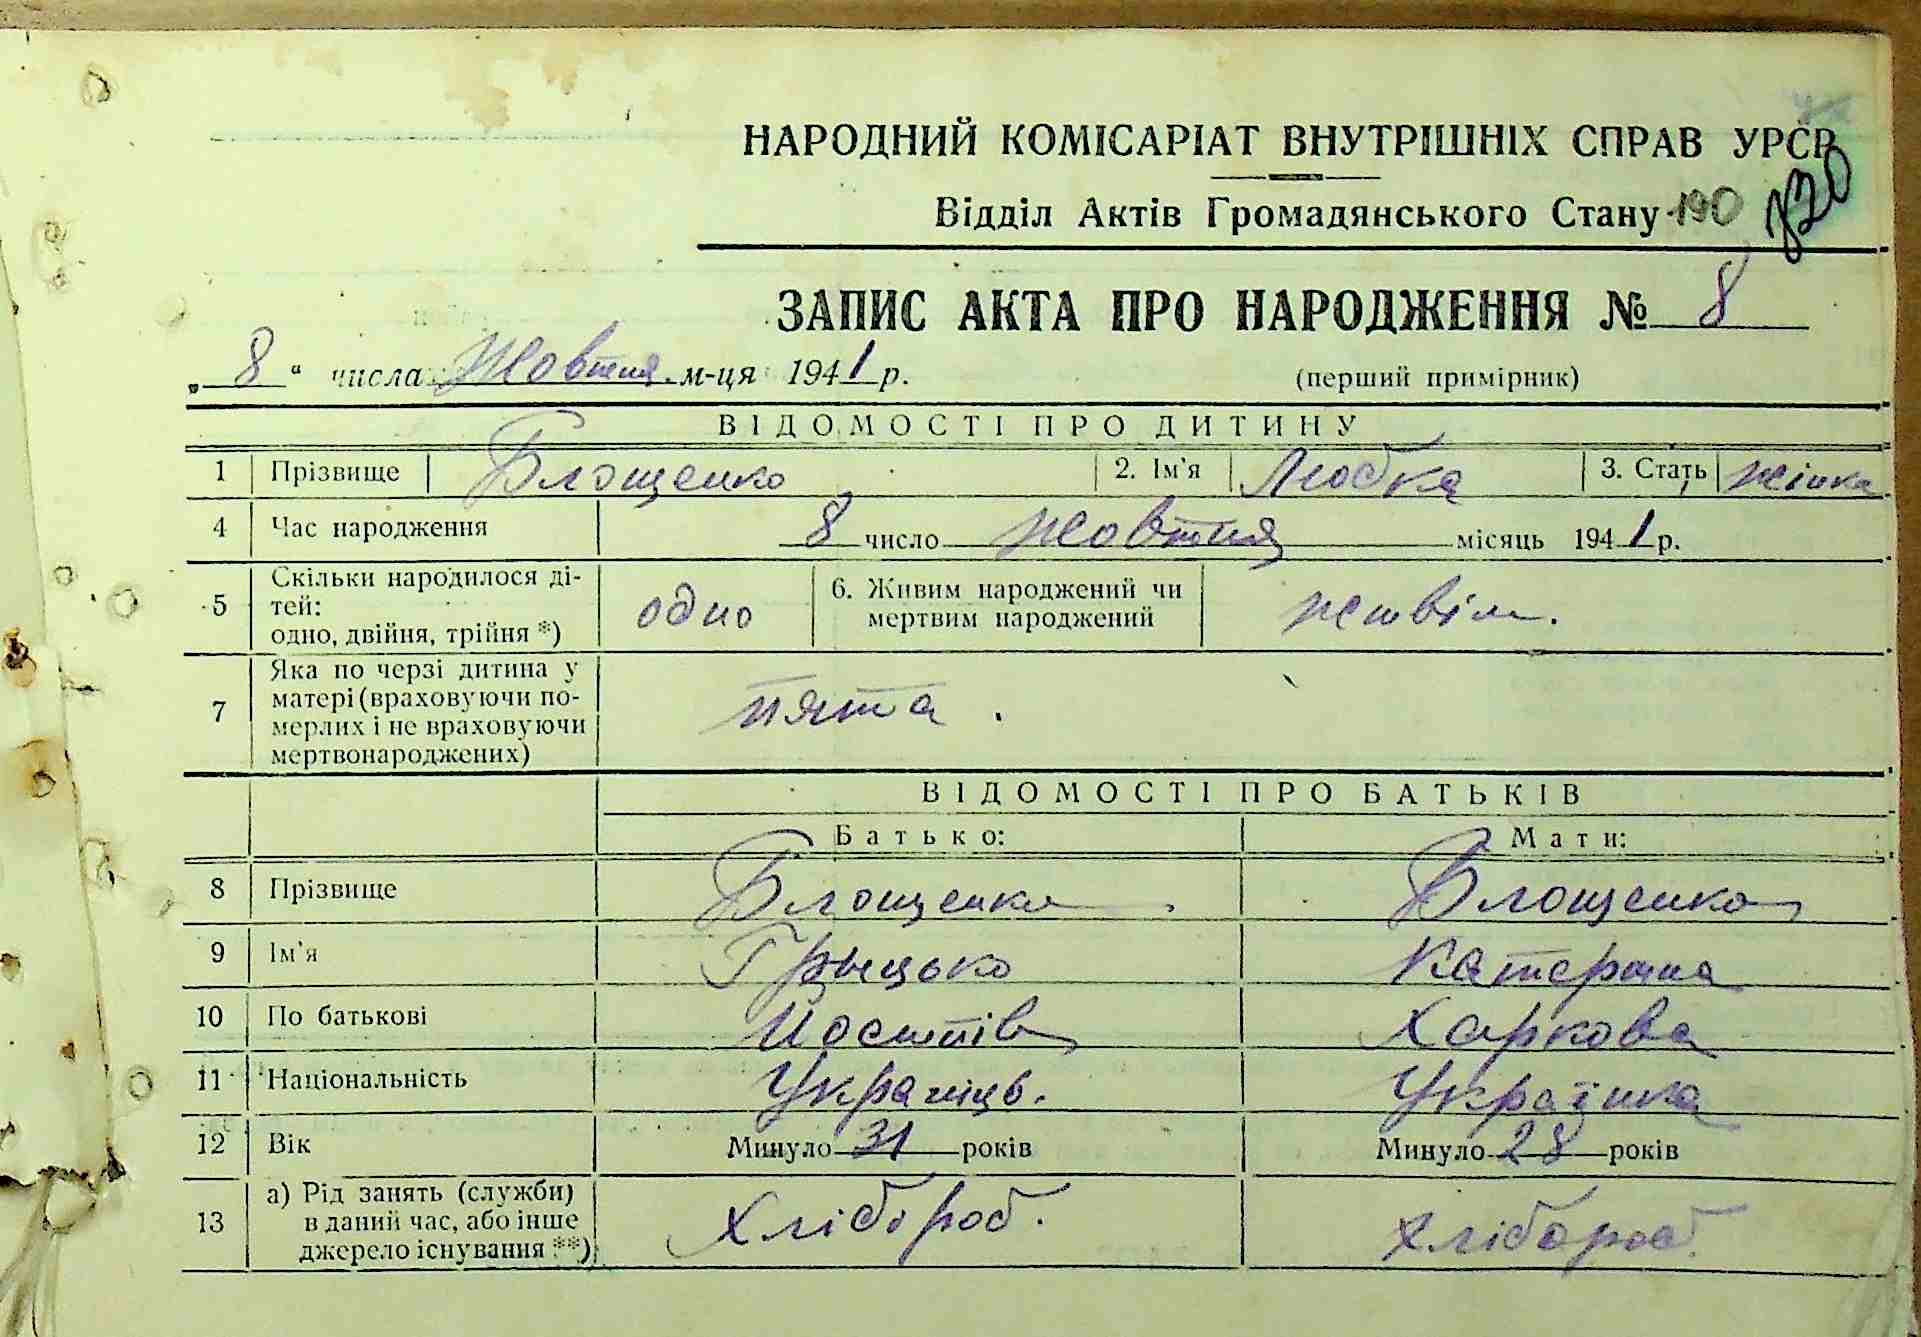 НАРОДНИЙ КОМІСАРІАТ ВНУТРІШНІХ СПРАВ УРСР
Відділ Актів Громадянського Стану 190
ЗАПИС АКТА ПРО НАРОДЖЕННЯ № 8
„8“ числа Жовтня м-ця 1941 р. (перший примірник)
ВІДОМОСТІ ПРО ДИТИНУ
1 Прізвище Блощенко 2. Ім'я Любка 3. Стать жінка
4 Час народження 8 число жовтня місяць 1941 р.
5 Скільки народилося ді-
тей:
одно, двійня, трійня *) одно 6. Живим народжений чи
мертвим народжений живім.
7 Яка по черзі дитина у
матері (враховуючи по-
мерлих і не враховуючи
мертвонароджених) пята.
ВІДОМОСТІ ПРО БАТЬКІВ
Батько: Мати:
8 Прізвище Блощенко Блощенко
9 Ім'я Грыцько Катерина
10 По батькові Йосипів Харкова
11 Національність Українць. Українка
12 Вік Минуло 31 років Минуло 28 років
13 а) Рід занять (служби)
в даний час, або інше
джерело існування **) Хлібороб. Хлібороб.